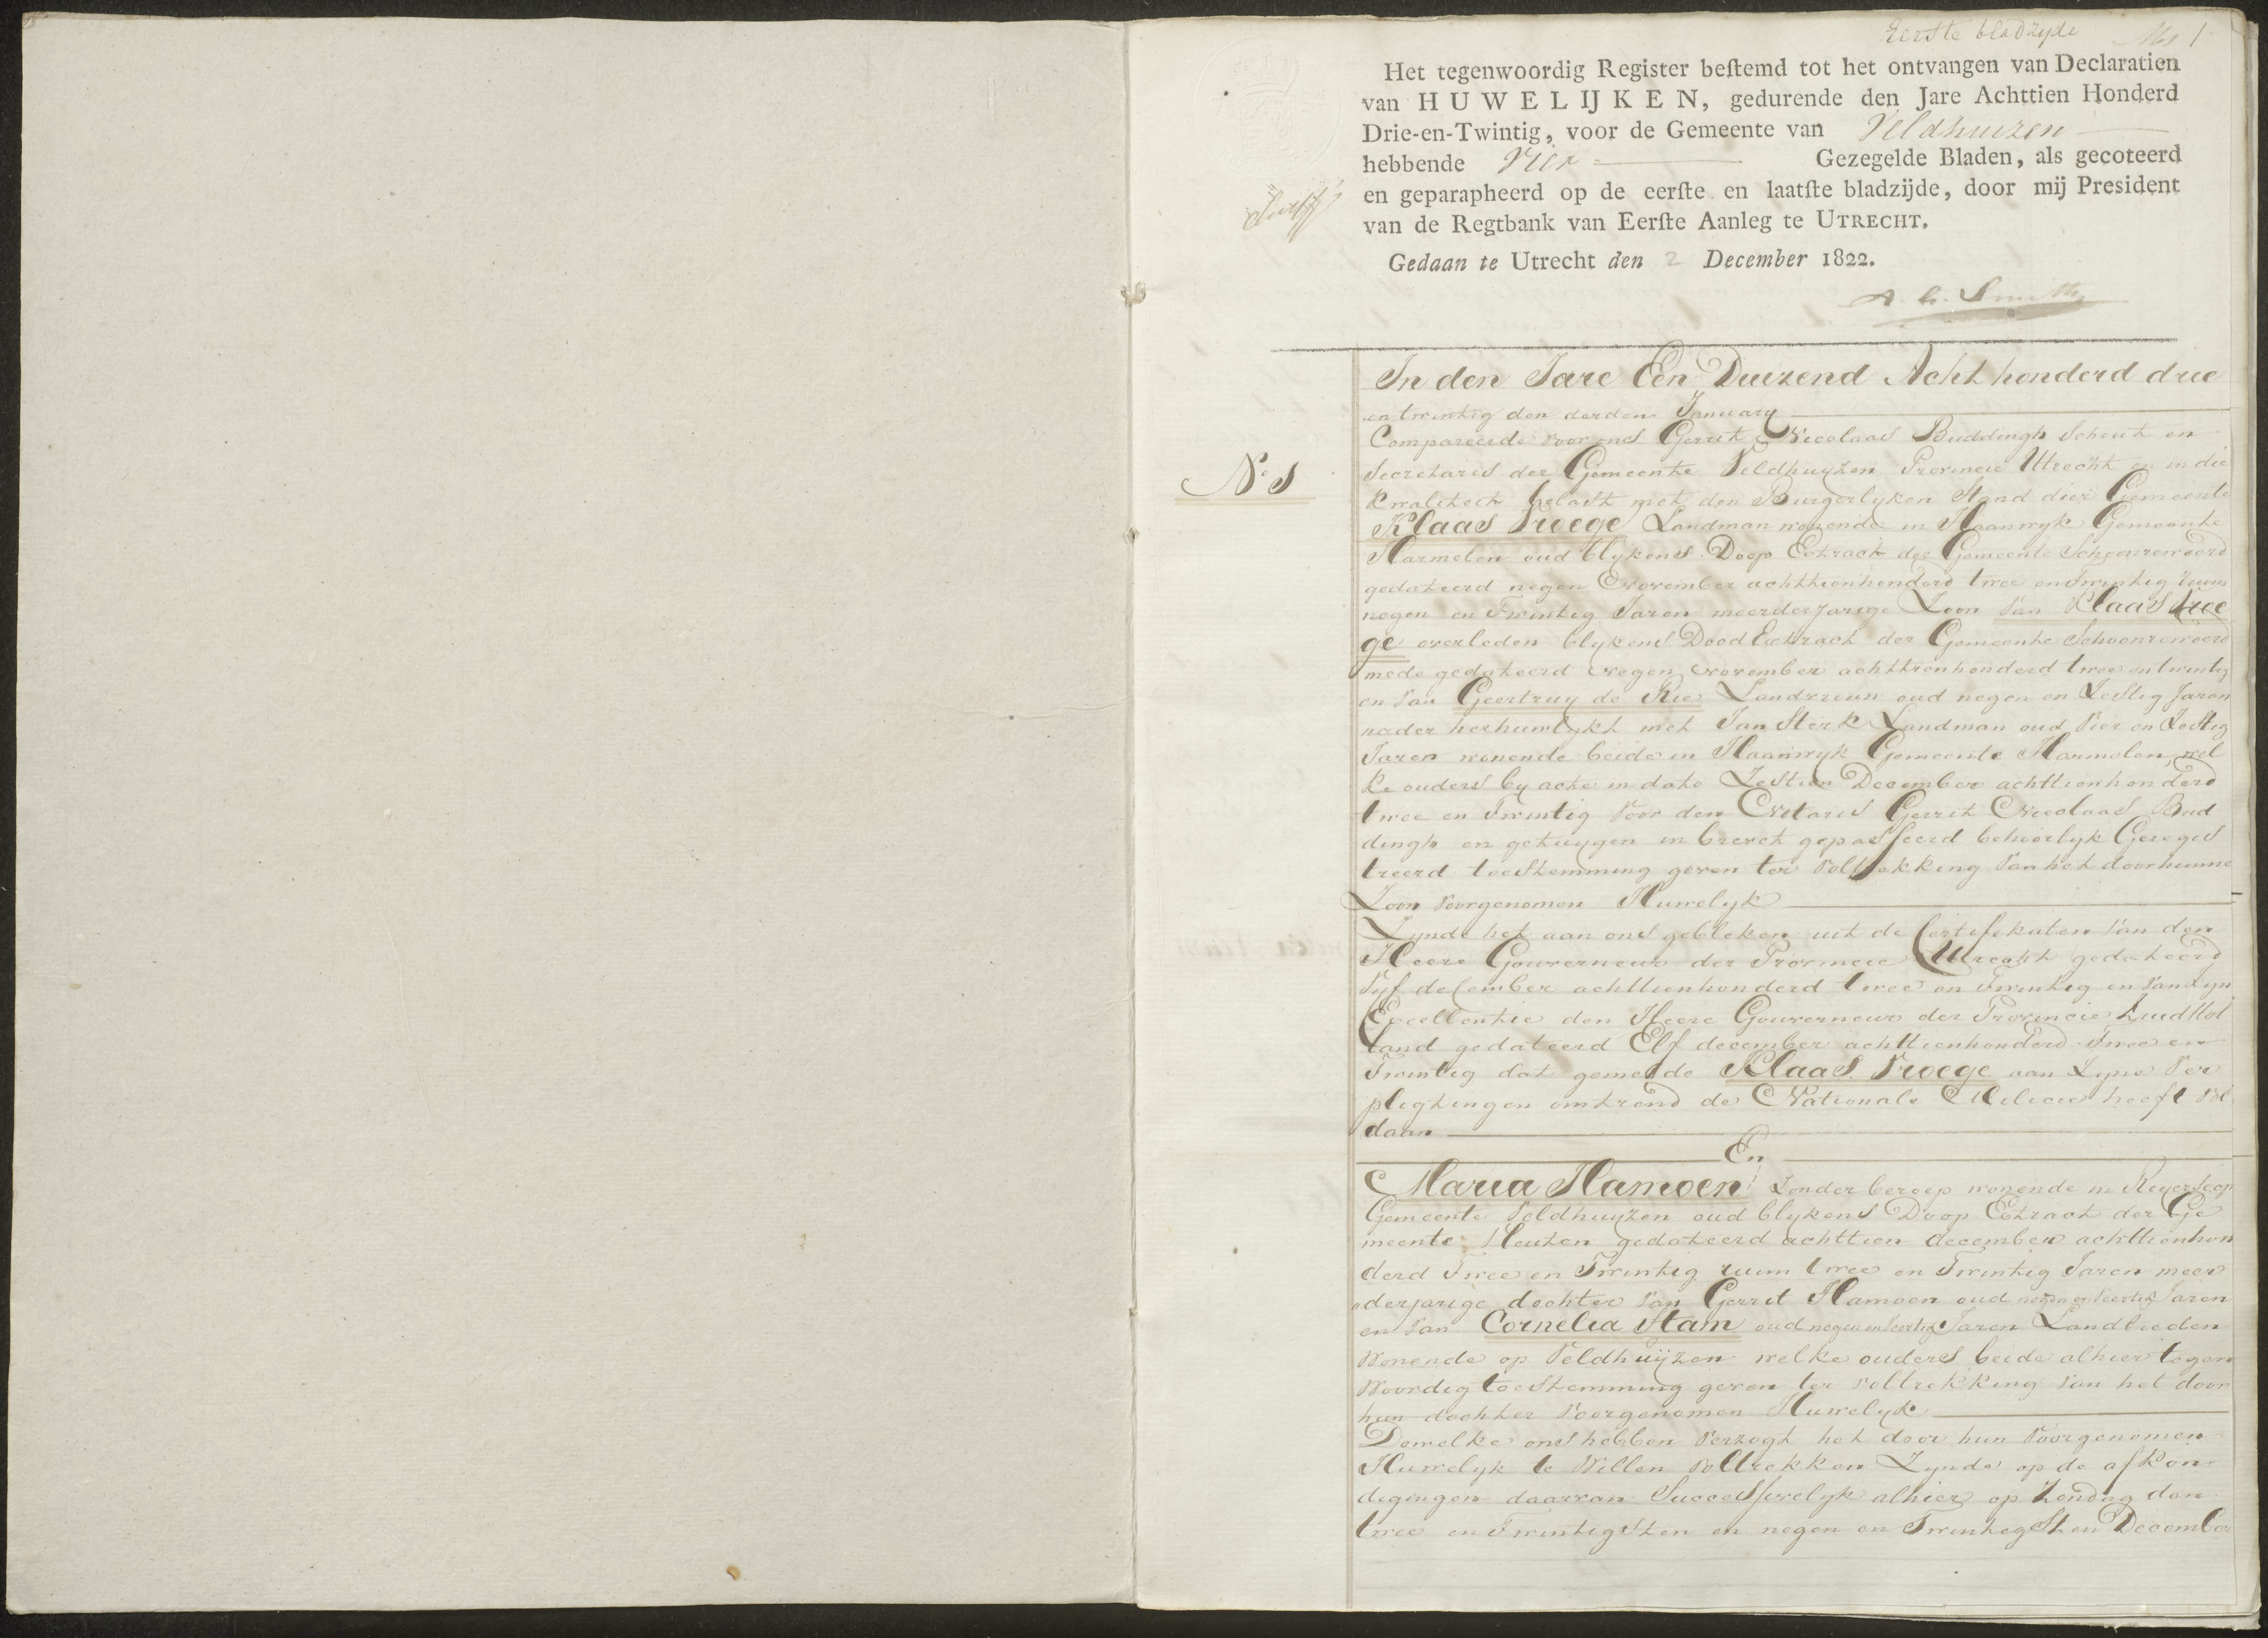 Eerste bladzyde 1
Het tegenwoordig Register beſtemd tot het ontvangen van Declaratien
van HUWELIJKEN, gedurende den Jare Achttien Honderd
Drie-en-Twintig, voor de Gemeente van Veldhuizen
hebbende vier Gezegelde Bladen, als gecoteerd
en geparapheerd op de eerſte en laatſte bladzijde, door mij President
van de Regtbank van Eerſte Aanleg te UTRECHT.
Gedaan te Utrecht den 2 December 1822.
In den Jare Een Duizend Acht honderd drie
en twintig den derden January
Compareerde voor ons Gerrit Nicolaas Buddingh Schout en
Secretaris der Gemeente Veldhuyzen Provincie Utrecht en in die
N° 1
kwaliteit belast met den Burgerlyken Stand dier Gemeente
Klaas Vroege Landman wonende in Haanwyk Gemeente
Harmelen oud blykens Doop Extract der Gemeente Schoonrewoerd
gedateerd negen November achttienhonderd twee en Twintig ruim
negen en Twintig Jaren meerderjarige Zoon van Klaas Vroe
ge overleden blykens Dood Extract der Gemeente Schoonrewoerd
mede gedateerd negen november achttienhonderd twee en twintig
en van Geertruy de Rie Landvrouw oud negen en Zestig Jaren
nader herhuwlykt met Jan Sterk Landman oud vier en Zestig
Jaren wonende beide in Haanwyk Gemeente Harmelen, wel
ke ouders by acte in dato Zestien December achttienhonderd
twee en Twintig voor den Notaris Gerrit Nicolaas Bud
dingh en getuygen in brevet gepasseerd behoorlyk Geregis
treerd toestemming geven ter voltrekking van het door hunne
Zoon voorgenomen Huwelyk
Zynde het aan ons gebleken uit de Certifikaten van den
Heere Gouverneur der Provincie Utrecht gedateerd
Vyf december achttienhonderd twee en Twintig en van Zyn
Excellentie den Heere Gouverneur der Provincie Zuid Hol
land gedateerd Elf december achttienhonderd Twee en
Twintig dat gemelde Klaas Vroege aan Zyne Ver
pligtingen omtrend de Nationale Milicie heeft vol
daan
En
Maria Hamoen Zonder beroep wonende in Reyerscop
Gemeente Veldhuyzen oud blykens Doop Extract der Ge
meente Vleuten gedateerd achttien december achttienhon
derd Twee en Twintig ruim twee en Twintig Jaren meer
derjarige dochter van Gerrit Hamoen oud negen en veertig Jaren
en van Cornelia Stam oud negen en veertig Jaren Landlieden
Wonende op Veldhuÿzen welke ouders beide alhier tegen
Woordig toestemming geven ter voltrekking van het door
hun dochter voorgenomen Huwelyk
Dewelke ons hebben verzogt het door hun voorgenomen
Huwelyk te Willen voltrekken Zynde op de afkon
digingen daarvan Successivelyk alhier op Zondag den
twee en Twintigsten en negen en Twintigsten December